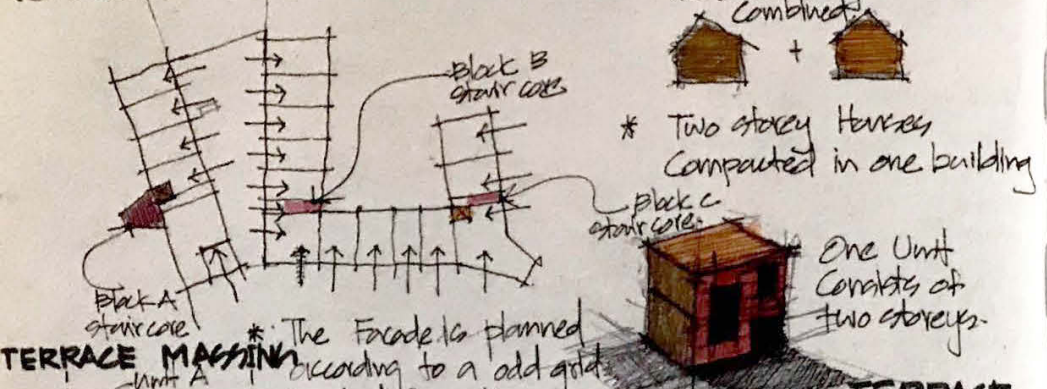 Combined.
+
Block B
stair core
* Two storey Houses
Compacted in one building
Block C
stair core.
One Unit
Consists of
two storeys.
Block A
stair core
* The Facade is planned
according to a odd grid
TERRACE MASSING
Unit A
TERRACE